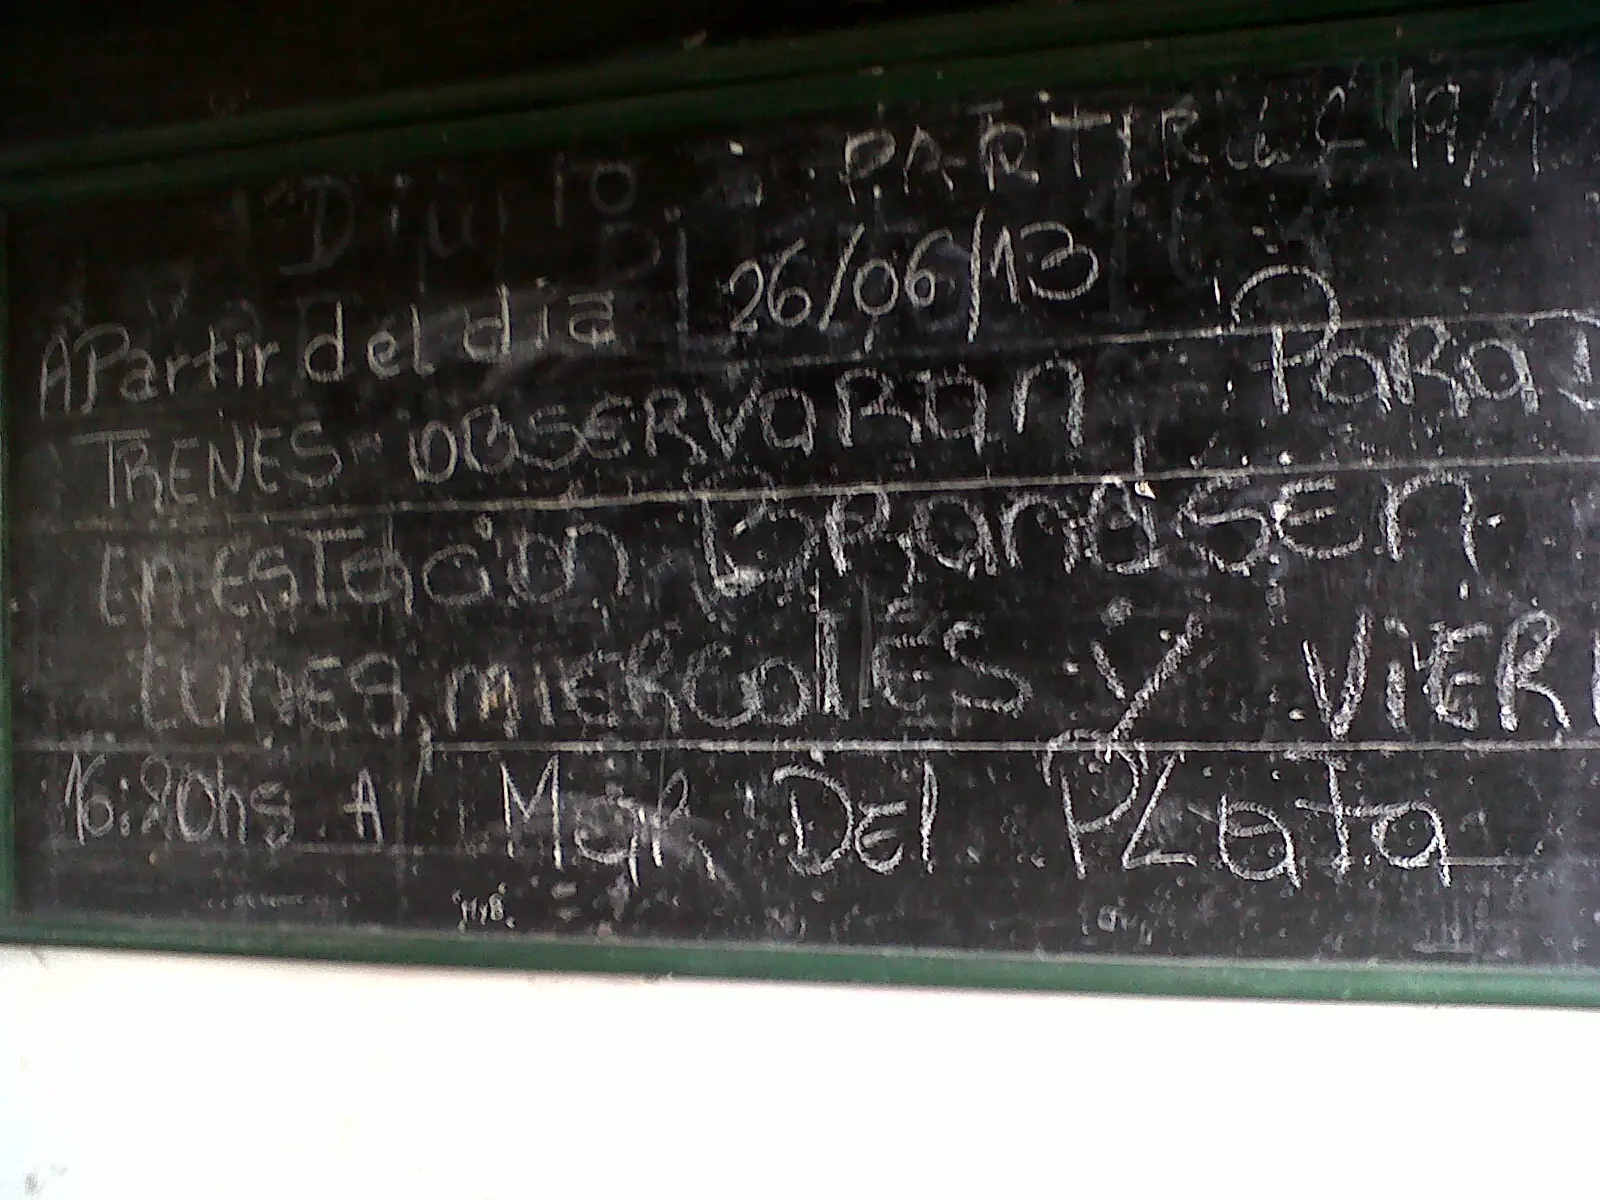 Diario PARTIR del 19/10
A Partir del dia 26/06/13
TRENES OBSERVARAN PARAD
En ESTacion BRandSEn
LUnES, MIERCOlES Y VIERN
16:20hs A MaR DEl PLata